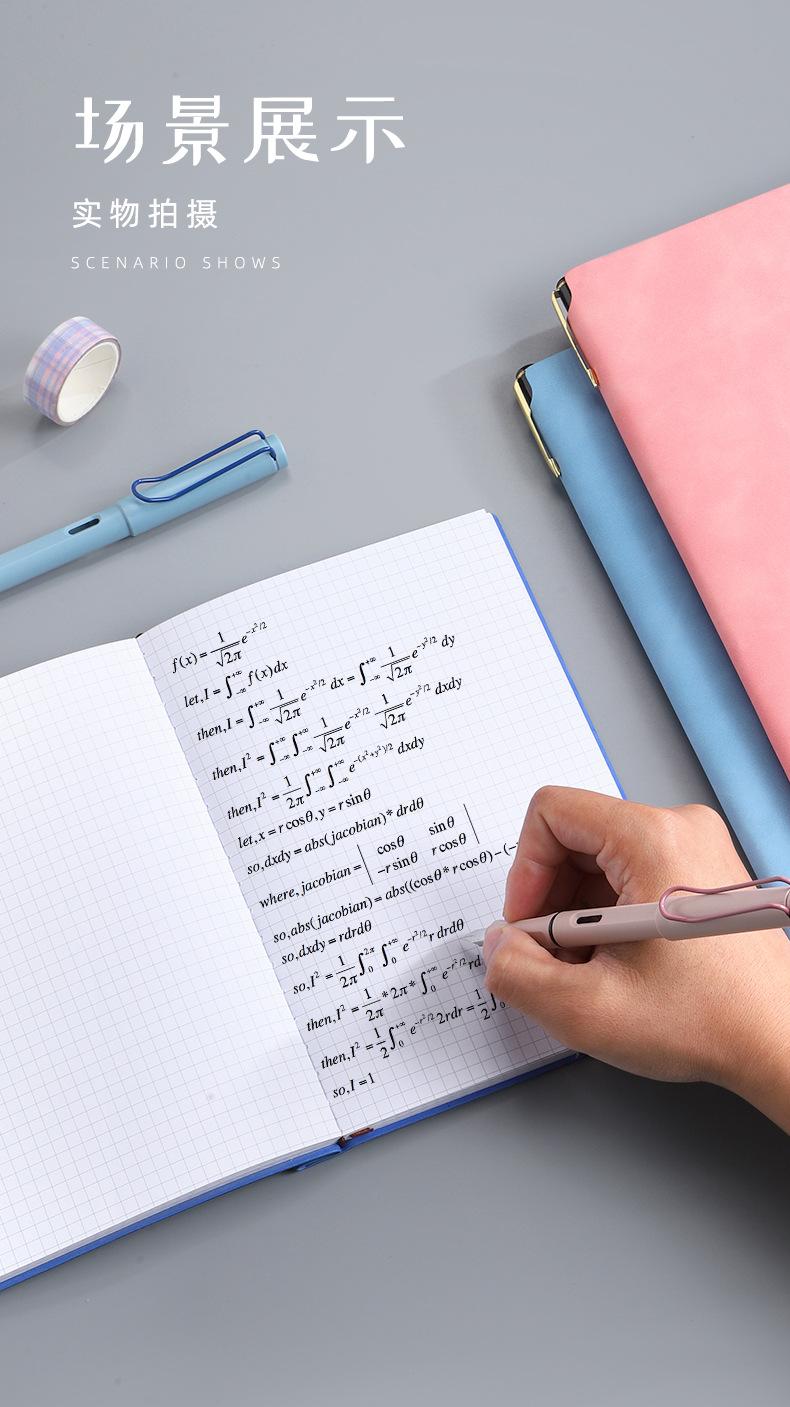 场景展示
实物拍摄
SCENARIO SHOWS
f(x)=1/√2π e^(-x²/2)
let,I=∫_-∞^+∞ f(x)dx
then,I=∫_-∞^+∞ 1/√2π e^(-x²/2) dx=∫_-∞^+∞ 1/√2π e^(-y²/2) dy
then,I²=∫_-∞^+∞ ∫_-∞^+∞ 1/√2π e^(-x²/2) 1/√2π e^(-y²/2) dxdy
then,I²=1/2π ∫_-∞^+∞ ∫_-∞^+∞ e^(-(x²+y²)/2) dxdy
let,x=rcosθ,y=rsinθ
so,dxdy=abs(jacobian)*drdθ
where,jacobian=| cosθ sinθ |
| -rsinθ rcosθ |
so,abs(jacobian)=abs((cosθ*rcosθ)-(-
so,dxdy=rdrdθ
so,I²=1/2π ∫_0^2π ∫_0^+∞ e^(-r²/2) r drdθ
then,I²=1/2π *2π* ∫_0^+∞ e^(-r²/2) rd
then,I²=1/2 ∫_0^+∞ e^(-r²/2) 2rdr=1/2 ∫_0
so,I=1